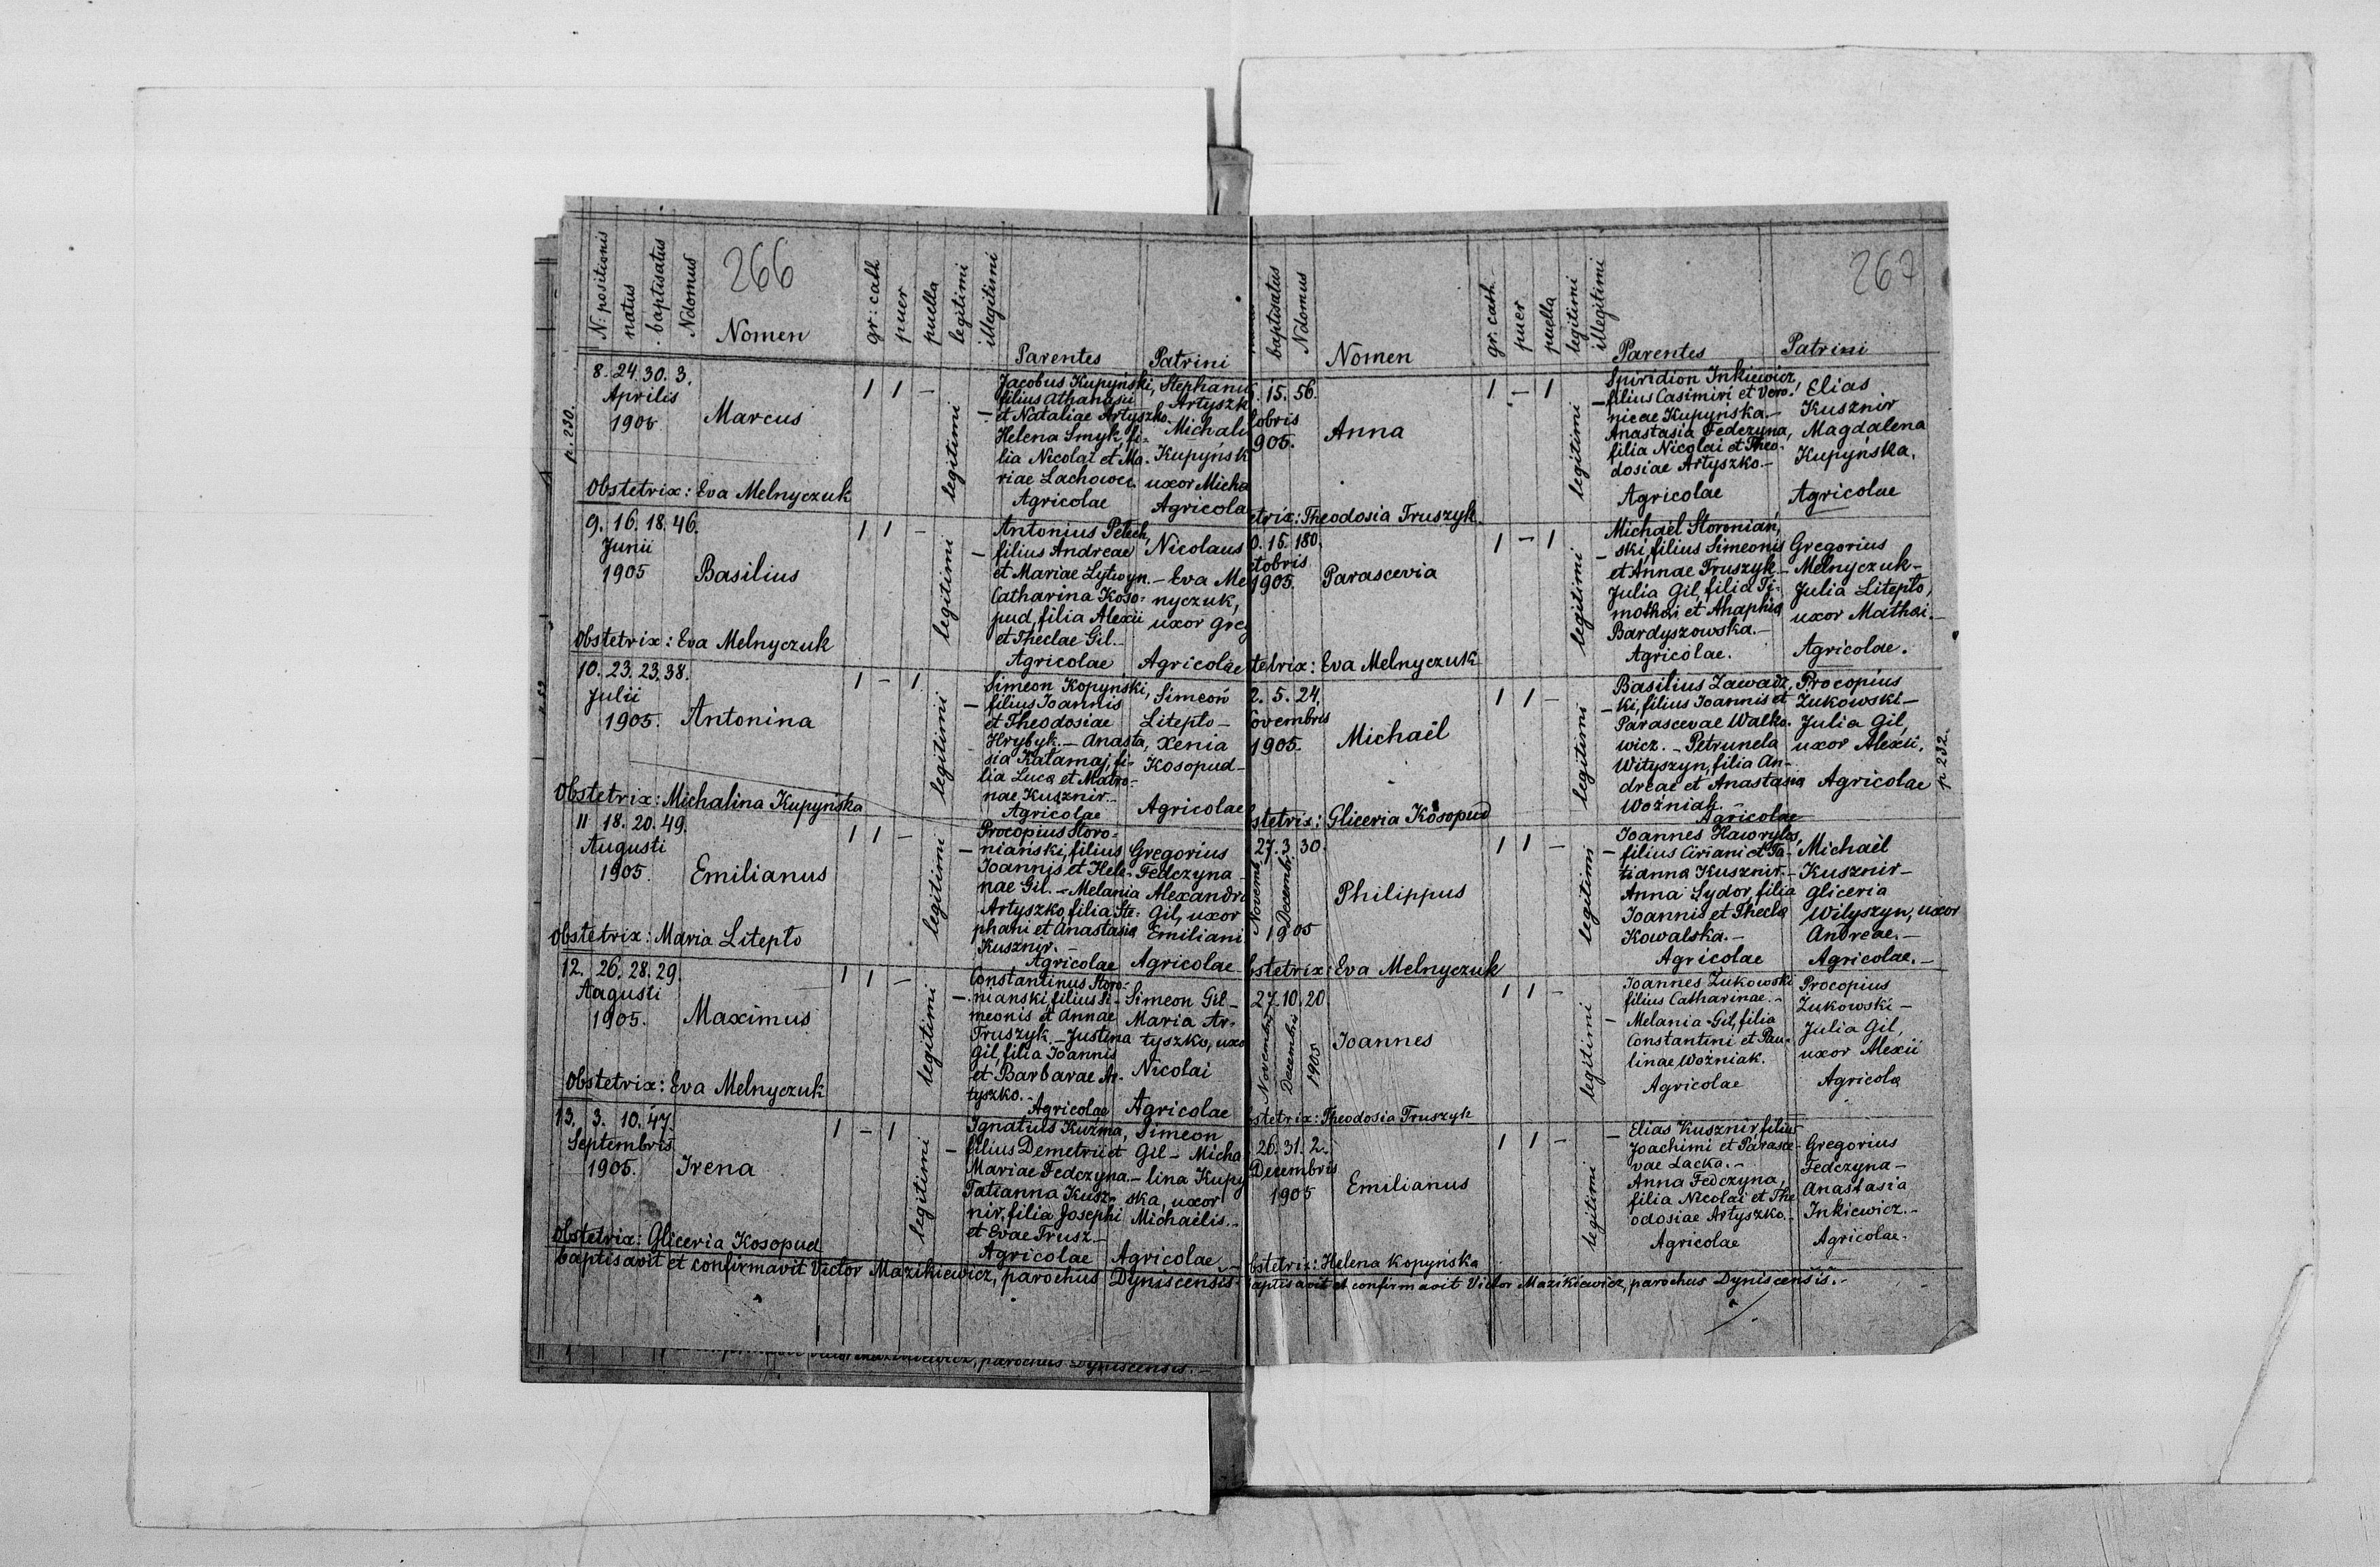 266
N: positionis
natus
baptisatus
N domus
Nomen
gr: cath
puer
puella
legitimi
illegitimi
Parentes
Patrini
p. 230.
8. 24. 30. 3.
Aprilis
1905
Marcus
1 1 -
legitimi
-
Jacobus Kupyński,
filius Athanasii
et Nataliae Artyszko.
Helena Smyk, fi=
lia Nicolai et Ma.
riae Lachowci.
Agricolae
Stephanu
Artyszk
Michali
Kupyńsk
uxor Micha
Agricola
Obstetrix: Eva Melnyczuk
9. 16. 18. 46.
Junii
1905
Basilius
1 1 -
legitimi
-
Antonius Petech,
filius Andreae
et Mariae Lytwyn.
Catharina Koso=
pud, filia Alexii
et Theclae Gil.-
Agricolae
Nicolaus
- Eva Me
nyczuk,
uxor Greg
Agricolae
Obstetrix: Eva Melnyczuk
10. 23. 23. 38.
Julii
1905.
Antonina
1 - 1
legitimi
-
Simeon Kopyński,
filius Joannis
et Theodosiae
Hrybyk. - Anasta,
sia Kałamaj, fi-
lia Luca et Matro-
nae Kusznir.-
Agricolae
Simeon
Litepło -
Xenia
Kosopud-
Agricolae
Obstetrix: Michalina Kupyńska
11 18. 20. 49.
Augusti
1905.
Emilianus
1 1 -
legitimi
-
Procopius Storo=
niański, filius
Joannis et Hele-
nae Gil. - Melania
Artyszko, filia Ste=
phani et Anastasia
Kusznir. -
Agricolae
Gregorius
Fedczyna
Alexandra
Gil, uxor
Emiliani
Agricolae
Obstetrix: Maria Litepło
12. 26. 28. 29.
Augusti
1905.
Maximus
1 1 -
legitimi
-
Constantinus Storo=
nianski, filius Si-
meonis et Annae
Truszyk. - Justina
Gil, filia Joannis
et Barbarae Ar-
tyszko.-
Agricolae
Simeon Gil -
Maria Ar-
tyszko, uxo
Nicolai
Agricolae
Obstetrix: Eva Melnyczuk
13. 3. 10. 47.
Septembris
1905.
Irena
1 - 1
legitimi
-
Ignatius Kuźma,
filius Demetrii et
Mariae Fedczyna.-
Tatianna Kusz-
nir, filia Josephi
et Evae Trusz.-
Agricolae
Simeon
Gil - Micha
lina Kupy
ska, uxor
Michaëlis.-
Agricolae.-
Obstetrix: Gliceria Kosopud
baptisavit et confirmavit Victor Mazikiewicz, parochus Dyniscensis.
parochus Dyniscensis.-
267
baptisatus
N domus
Nomen
gr. cath.
puer
puella
legitimi
illegitimi
Parentes
Patrini
15. 56.
tobris
905.
Anna
1 - 1
legitimi
-
Spiridion Inkiewicz,
filius Casimiri et Vero-
nicae Kupyńska.-
Anastasia Fedczyna,
filia Nicolai et Theo-
dosiae Artyszko.-
Agricolae
Elias
Kusznir
Magdalena
Kupyńska.
Agricolae
etrix: Theodosia Truszyk.
0. 15. 180.
ctobris
1905.
Parascevia
1 - 1
legitimi
-
Michaël Storonian,
ski, filius Simeonis
et Annae Truszyk.-
Julia Gil, filia Ti-
mothei et Ahaphia
Bardyszowska.-
Agricolae.
Gregorius
Melnyczuk-
Julia Litepło,
uxor Mathai.-
Agricolae.
tetrix: Eva Melnyczuk
2. 5. 24.
ovembris
1905.
Michaël
1 1 -
legitimi
-
Basilius Zawadz,
ki, filius Joannis et
Parascevae Walko-
wicz. - Petrunela
Wityszyn, filia An-
dreae et Anastasia
Woźniak.-
Agricolae
Procopius
Żukowski-
Julia Gil,
uxor Alexii.
Agricolae
p. 232.
bstetrix: Gliceria Kosopud
27. 3. 30.
Novemb.
Decembr.
1905
Philippus
1 1 -
legitimi
-
Joannes Hawrylos,
filius Ciriani et Ta-
tianna Kusznir.-
Anna Sydor, filia
Joannis et Thecla
Kowalska.-
Agricolae
Michaël
Kusznir-
Gliceria
Wityszyn, uxor
Andreae.-
Agricolae.-
bstetrix: Eva Melnyczuk
27. 10. 20.
Novembris
Decembris
1905
Joannes
1 1 -
legitimi
-
Joannes Żukowski
filius Catharinae.-
Melania Gil, filia
Constantini et Pau-
linae Woźniak.
Agricolae
Procopius
Żukowski-
Julia Gil,
uxor Alexii
Agricola
bstetrix: Theodosia Truszyk
26. 31. 2.
Decembris
1905
Emilianus
1 1 -
legitimi
-
Elias Kusznir, filius
Joachimi et Parasce-
vae Lacka.-
Anna Fedczyna,
filia Nicolai et The
odosiae Artyszko.-
Agricolae
Gregorius
Fedczyna-
Anastasia
Inkiewicz.-
Agricolae.
bstetrix: Helena Kopyńska
baptisavit et confirmavit Victor Mazikiewicz, parochus Dyniscensis.-